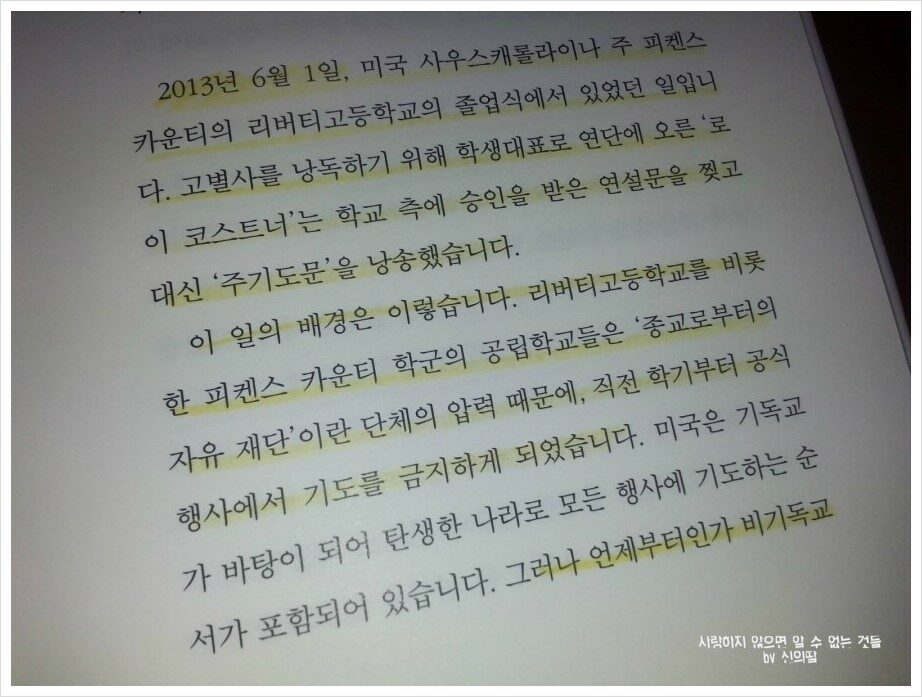 2013년 6월 1일, 미국 사우스캐롤라이나 주 피켄스
카운티의 리버티고등학교의 졸업식에서 있었던 일입니
다. 고별사를 낭독하기 위해 학생대표로 연단에 오른 ‘로
이 코스트너’는 학교 측에 승인을 받은 연설문을 찢고
대신 ‘주기도문’을 낭송했습니다.
이 일의 배경은 이렇습니다. 리버티고등학교를 비롯
한 피켄스 카운티 학군의 공립학교들은 ‘종교로부터의
자유 재단’이란 단체의 압력 때문에, 직전 학기부터 공식
행사에서 기도를 금지하게 되었습니다. 미국은 기독교
가 바탕이 되어 탄생한 나라로 모든 행사에 기도하는 순
서가 포함되어 있습니다. 그러나 언제부터인가 비기독교
사랑하지 않으면 알 수 없는 것들
by 신의딸